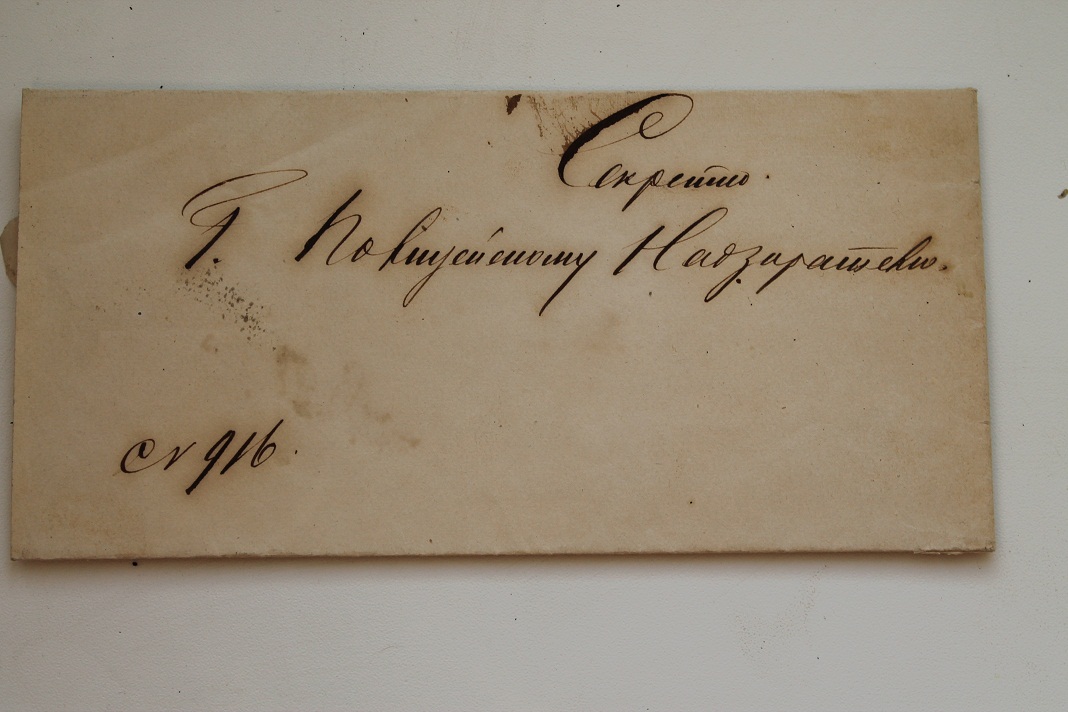 Секретно.
Г. Полицейскому Надзирателю.
№ 916.